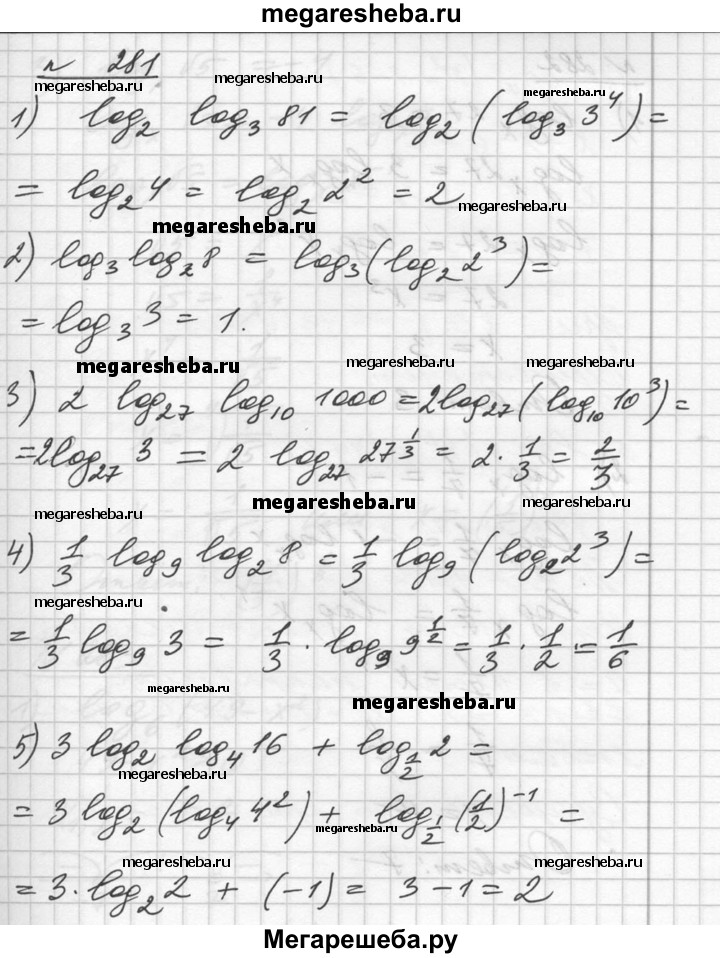 megaresheba.ru
№ 281
megaresheba.ru
megaresheba.ru
megaresheba.ru
1) log₂ log₃ 81 = log₂ (log₃ 3⁴) =
= log₂ 4 = log₂ 2² = 2
megaresheba.ru
megaresheba.ru
2) log₃ log₂ 8 = log₃ (log₂ 2³) =
= log₃ 3 = 1.
megaresheba.ru
megaresheba.ru
megaresheba.ru
3) 2 log₂₇ log₁₀ 1000 = 2 log₂₇ (log₁₀ 10³) =
= 2 log₂₇ 3 = 2 log₂₇ 27^(1/3) = 2 · 1/3 = 2/3
megaresheba.ru
megaresheba.ru
megaresheba.ru
4) 1/3 log₉ log₂ 8 = 1/3 log₉ (log₂ 2³) =
megaresheba.ru
= 1/3 log₉ 3 = 1/3 · log₉ 9^(1/2) = 1/3 · 1/2 = 1/6
megaresheba.ru
megaresheba.ru
5) 3 log₂ log₄ 16 + log_(1/2) 2 =
megaresheba.ru
= 3 log₂ (log₄ 4²) + log_(1/2) (1/2)⁻¹ =
megaresheba.ru
megaresheba.ru
megaresheba.ru
= 3 · log₂ 2 + (−1) = 3 − 1 = 2
Мегарешеба.ру